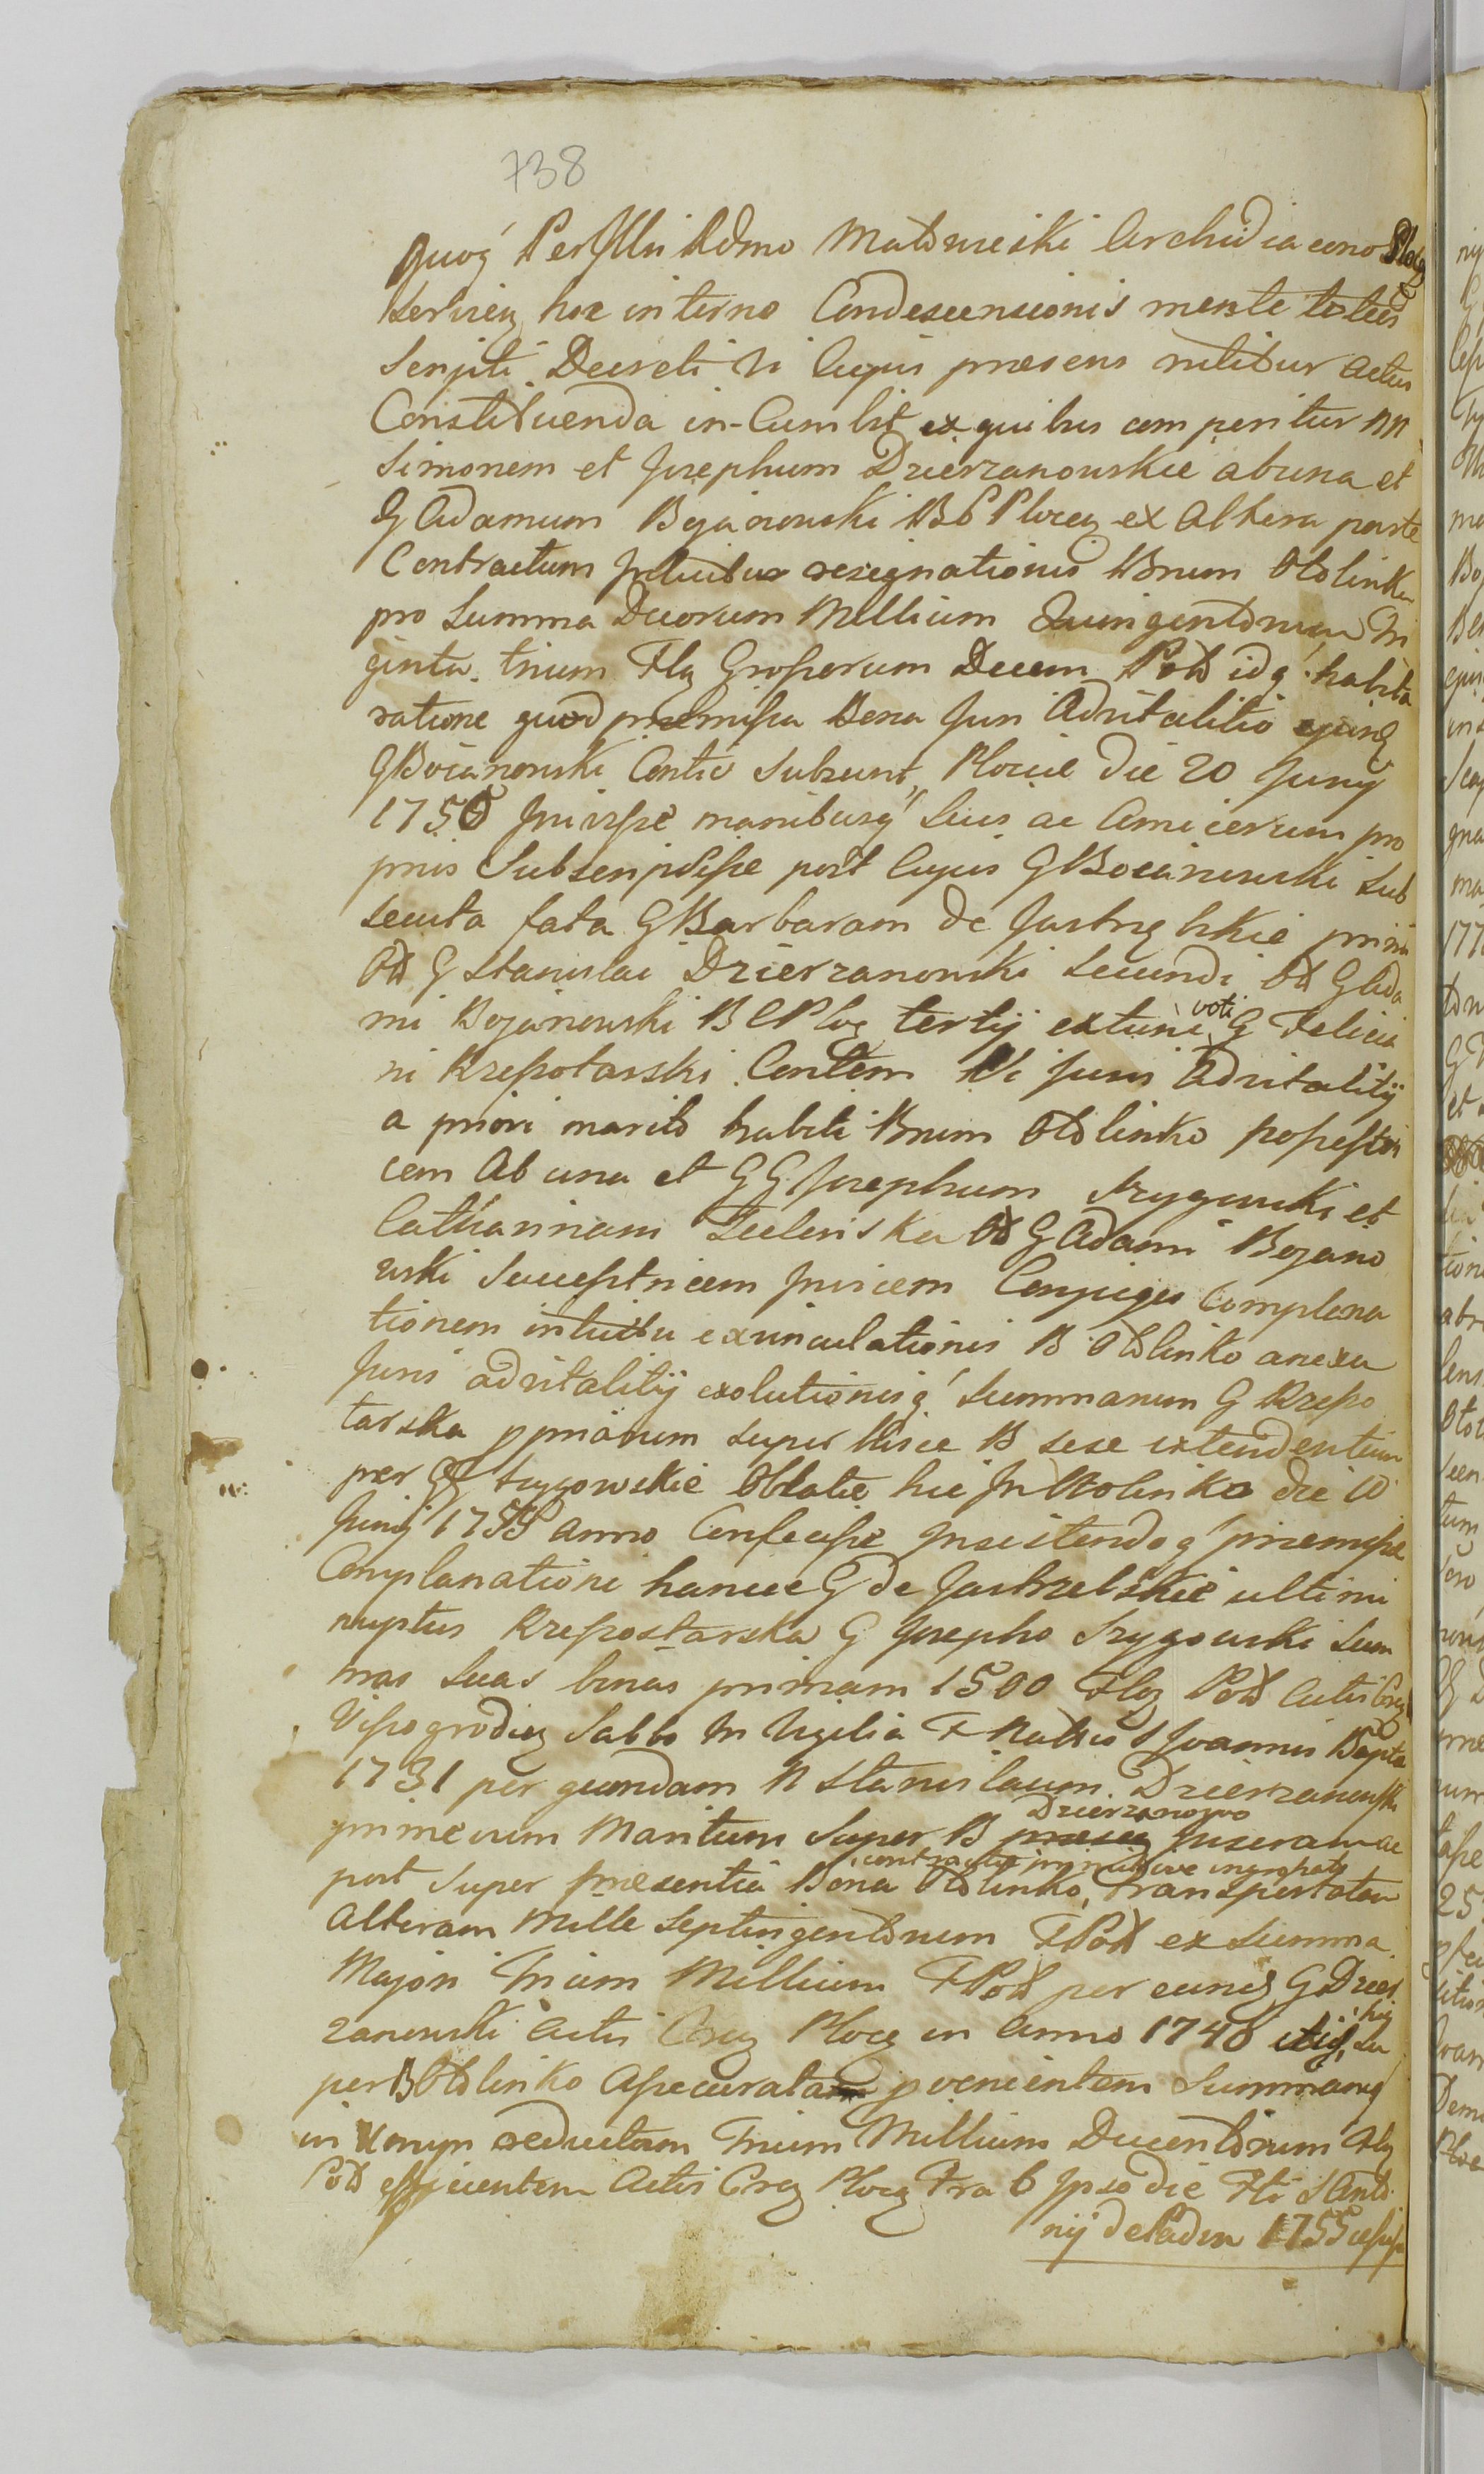 738
quoq́ PerIllri Rdmo Matowieski Archidiacono Ploc̨
hoc interno Condescensionis mente toties
Scripti Decreti vi Cujus praesens nititur actus
Constituenda in-Cumbit ex quibus comperitur MM
Simonem et Josephum Dzierzanowskie ab una et
G Adamum Bojanowski B C Plocen ex Altera parte
Contractum Intuitu resignationis Bnum Otolinko
pro Summa Duorum Millium Quingentorum Tri
ginta trium Flg Grossorum Decem Pol idq́ habita
ratione quod praemissa Bona Juri Advitalitio ejusd
G Bojanowski Contis Subsunt, Plociae die 20 Junij
1750 Inivisse manibusq́ Suis ac Amicorum pro
priis Subscripsisse post Cujus G Bocianowski Sub
secuta fata G Barbaram de Jastrzębskie primi
Ol G Stanislai Dzierzanowski Secundi Ol G Ada
mi Bojanowski B C Ploc tertij extunc voti G Felicia
ni Krępotarski Contem Vi Juris Advitalitij
a priori marito habiti Bnum Otolinko possestri
cem Ab una et G G Josephum Szygowski et
Catharinam Zielenska Ol G Adami Bojano
wski Succestricem Invicem Conjuges Complana
tionem intuitu exvinculationis B Otolinko anexu
Juris advitalitij exolutionisq́ Summarum G Krepo
tarska ppriarum super hisce B sese extendentium
per GG Szygowskie Oblatae hic In Otolinko die 10
Junij 1755 anno Confecisse Insistendoq́ praemissae
Complanationi hancce G de Jastrzebskie ultimi
nuptus Krepostarska G Josepho Szygowski Sum
mas Suas binas primam 1500 Flg Pol Actis Cas
Vissogrodien Sabbo In Vigilia F Natus S Joannis Bapta
1731 per quondam N Stanislaum Dzierzanowski
primevum Maritum Super B Dzierzanowo Inseram ac
post Super praesentia Bona Otolinko, contractu transportatam
Alteram Mille Septingentorum F Pol ex Summa
Majori Trium Millium F Pol per eund G Dzier
zanowski Actis Cas Ploc in Anno 1748 hic Su
per B Otolinko Assecuratam pvenientem Summamq́
in Unum reductam Trium Millium Ducentorum Flg
Pol efficientem Actis Cas Ploc Fra 6 Ipso die Fti S Anto
nij de Padua 1755